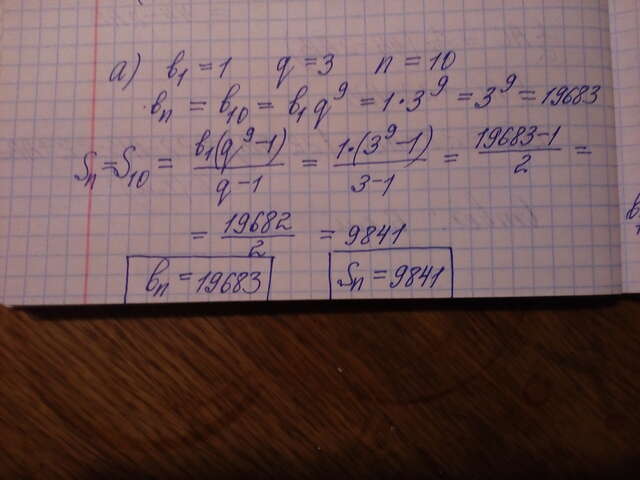 а) b₁ = 1 q = 3 n = 10
bₙ = b₁₀ = b₁q⁹ = 1·3⁹ = 3⁹ = 19683
Sₙ = S₁₀ = b₁(q⁹-1)/q-1 = 1·(3⁹-1)/3-1 = 19683-1/2 =
= 19682/2 = 9841
bₙ = 19683 Sₙ = 9841